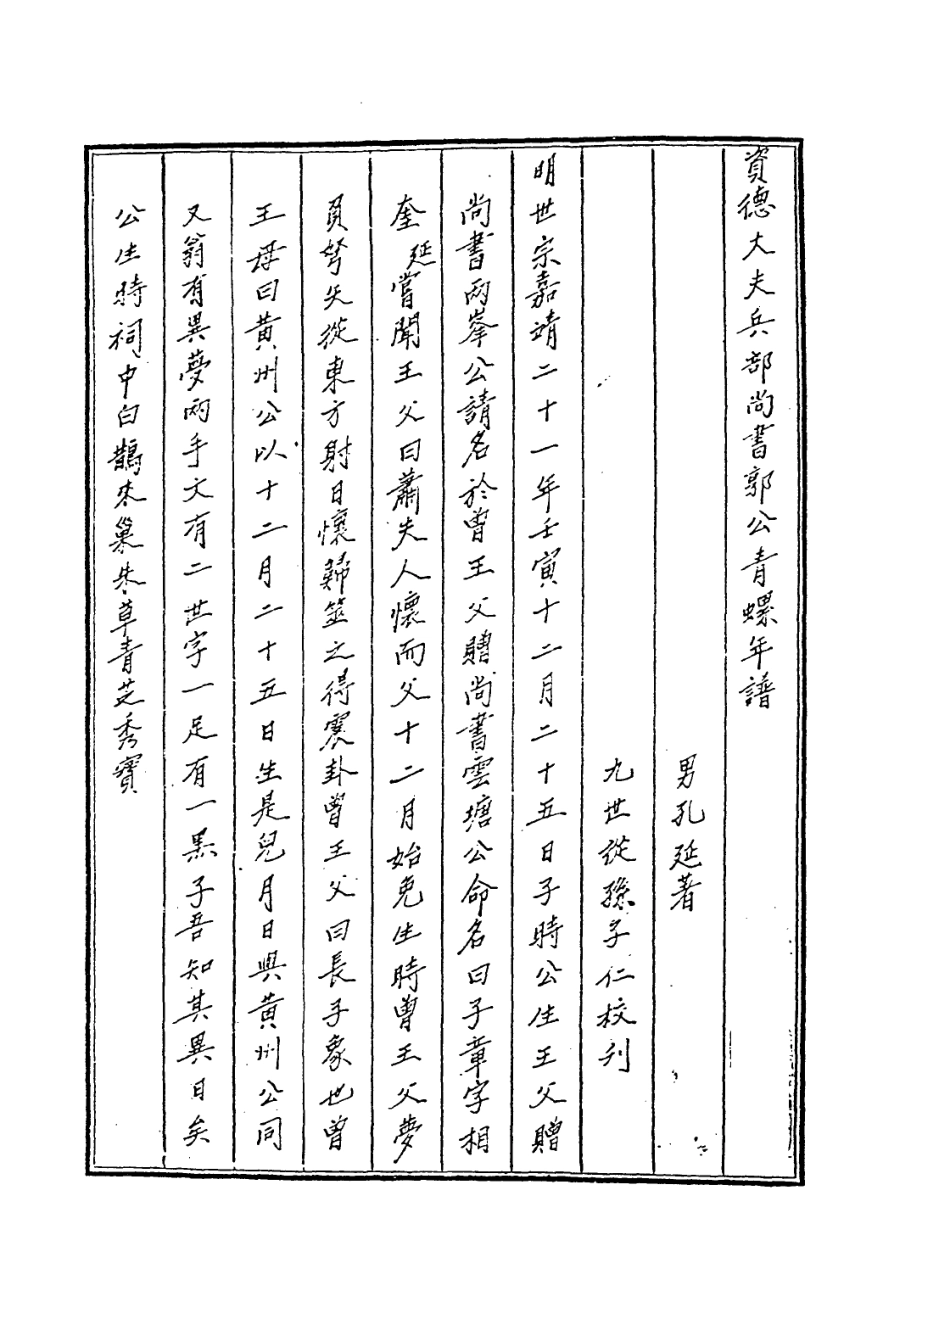 資德大夫兵部尚書郭公青螺年譜
男孔延著
九世從孫子仁校刋
明世宗嘉靖二十一年壬寅十二月二十五日子時公生王父贈
尚書兩峯公請名於曾王父贈尚書雲塘公命名曰子章字相
奎延嘗聞王父曰蕭夫人懷而父十二月始免生時曾王父夢
負弩矢從東方射日懷歸筮之得震卦曾王父曰長子象也曾
王母曰黃州公以十二月二十五日生是兒月日與黃州公同
又翁有異夢兩手文有二世字一足有一黑子吾知其異日矣
公生時祠中白鵲來巢朱草青芝秀實